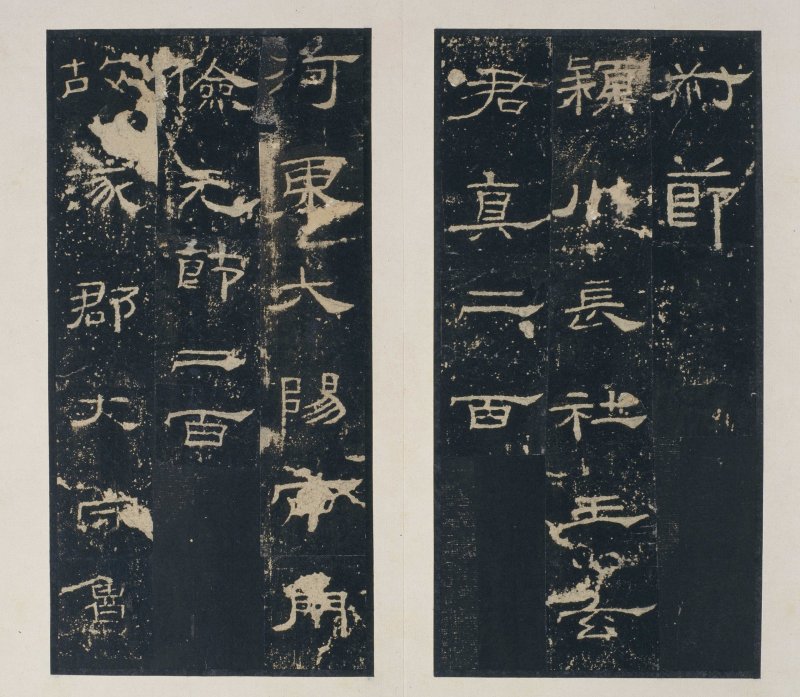 叔節
穎川長社王玄
君真二百
河東大陽西門
儉元節二百
故涿郡大守魯